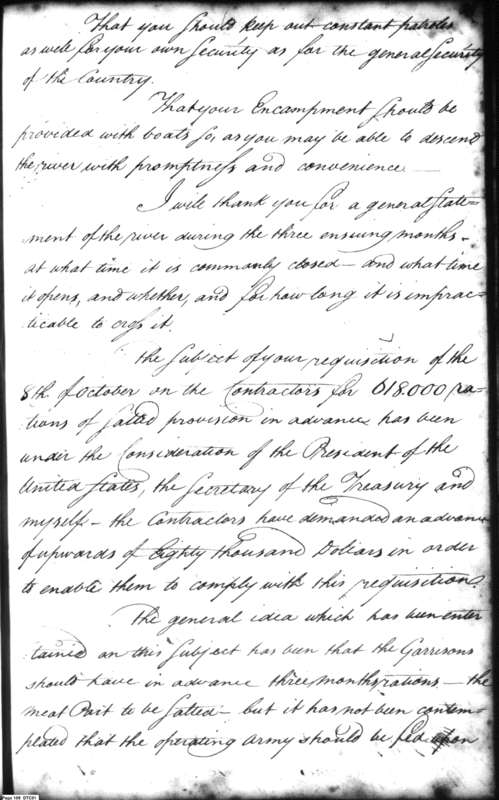 That you should keep out constant patroles
as well for your own Security as for the general Security
of the Country.
That your Encampment should be
provided with boats so, as you may be able to descend
the river with promptness and convenience —
I will thank you for a general State-
ment of the river during the three ensuing months -
at what time it is commonly closed — and what time
it opens, and whether, and for how long it is imprac-
ticable to cross it.
The subject of your requisition of the
8th of October on the Contractors for 618.000 ra-
tions of salted provision in advance has been
under the Consideration of the President of the
United States, the Secretary of the Treasury and
myself — the Contractors have demanded an advance
of upwards of Eighty thousand Dollars in order
to enable them to comply with this requisition.
The general idea which has been enter
tained on this Subject has been that the Garrisons
should have in advance three months rations — the
meat Part to be salted — but it has not been contem-
plated that the operating Army should be fed upon
Page 109 DTC01